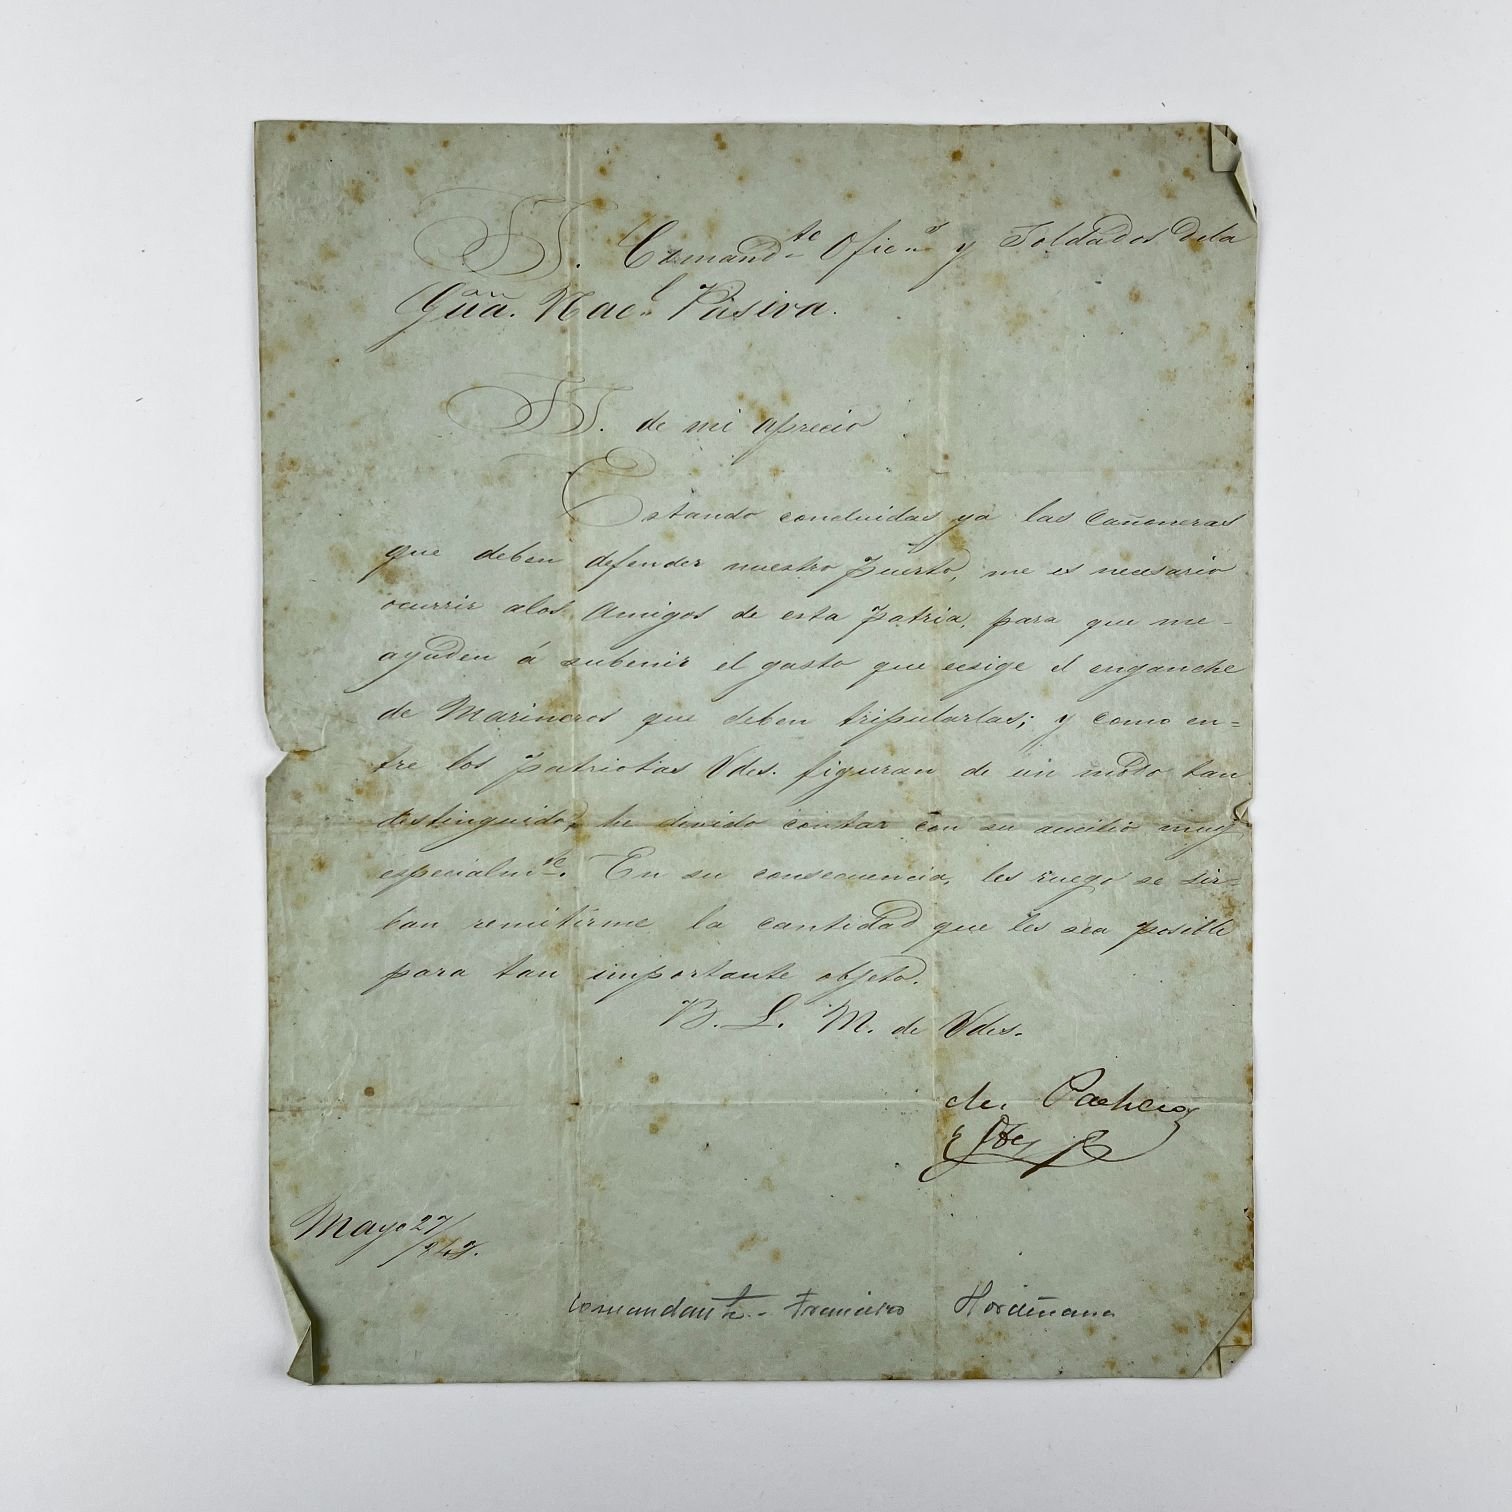 SS. Comand.te Ofic.s y Soldados dela
Guã. Nac.l Pasiva.
SS. de mi aprecio
Estando concluidas ya las Cañoneras
que deben defender nuestro Puerto, me es necesario
ocurrir alos Amigos de esta Patria, para que me-
ayuden á subenir el gasto que exige el enganche
de Marineros que deben tripularlas; y como en=
tre los Patriotas Vdes. figuran de un modo tan
distinguido, he devido contar con su aucilio muy
especialm.te. En su consecuencia, les ruego se sir=
ban remitirme la cantidad que les sea posible
para tan importante objeto.
B. L. M. de Vdes.
Pacheco
Mayo 27/
/849.
Comandante - Francisco Hordeñana